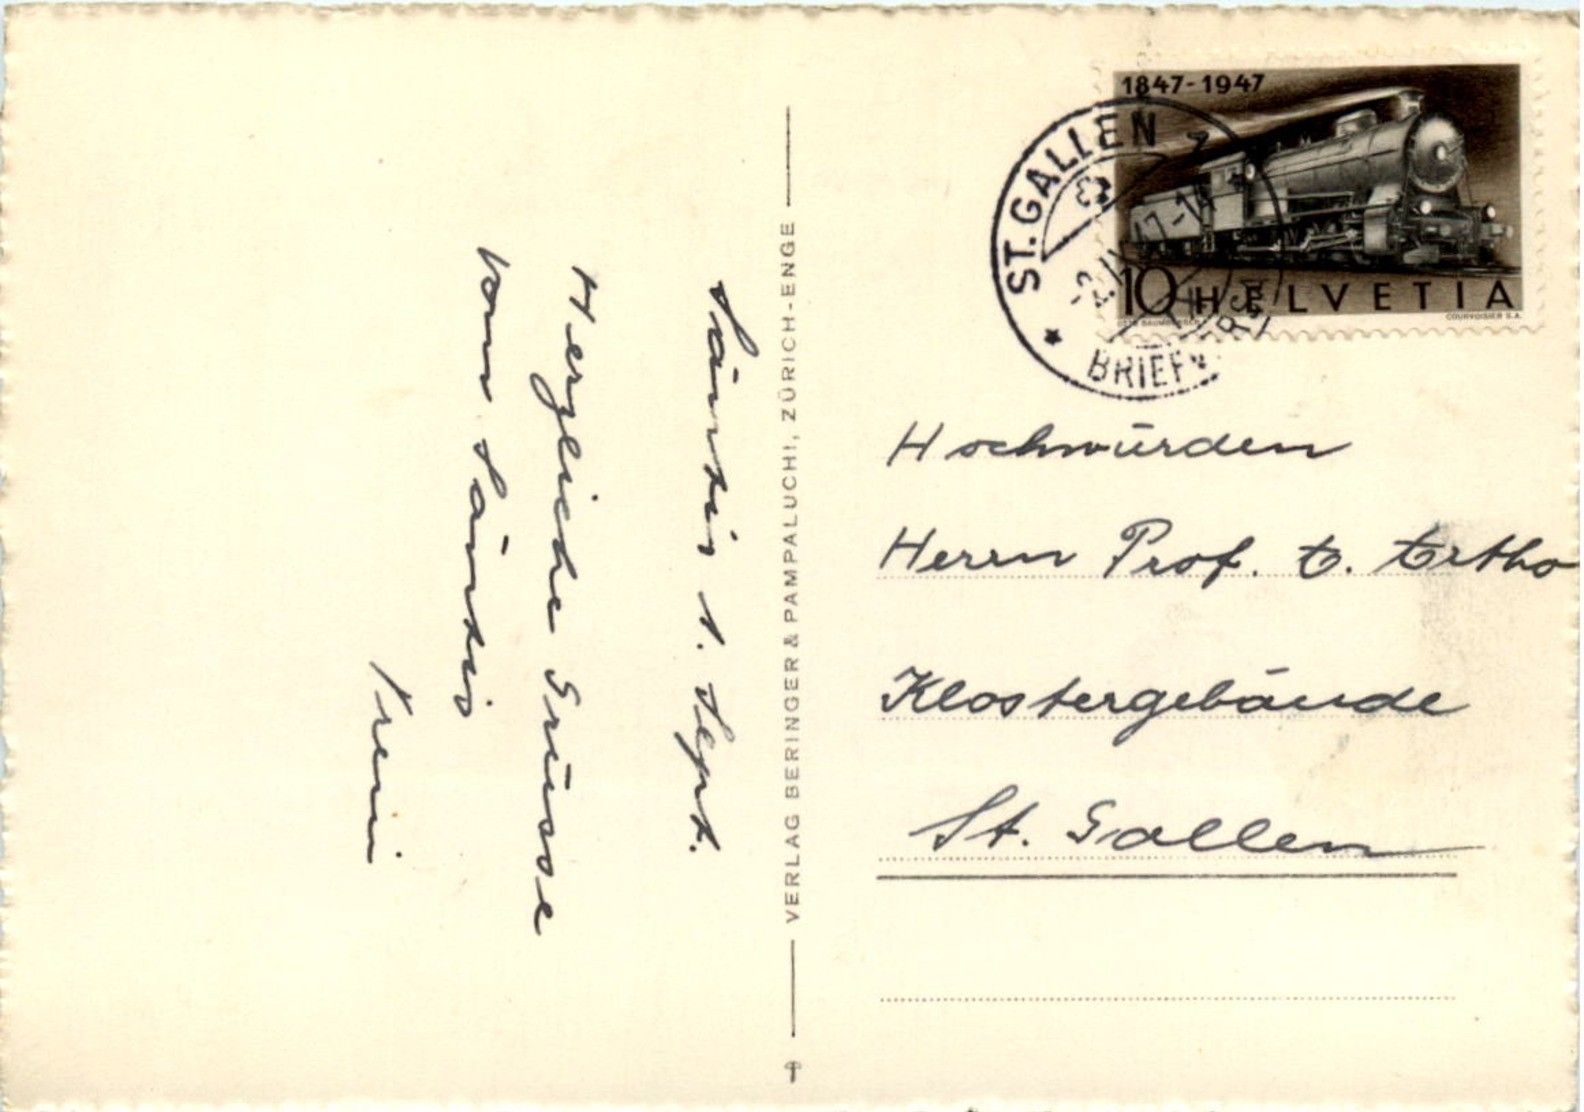 Säntis 1. Sept.
Herzliche Grüsse
vom Säntis
Vreni
VERLAG BERINGER & PAMPALUCHI, ZÜRICH-ENGE
1847-1947
10 HELVETIA
COURVOISIER S.A.
ST. GALLEN
-2.IX.47-14
BRIEFVERS
Hochwürden
Herrn Prof.
Klostergebäude
St. Gallen